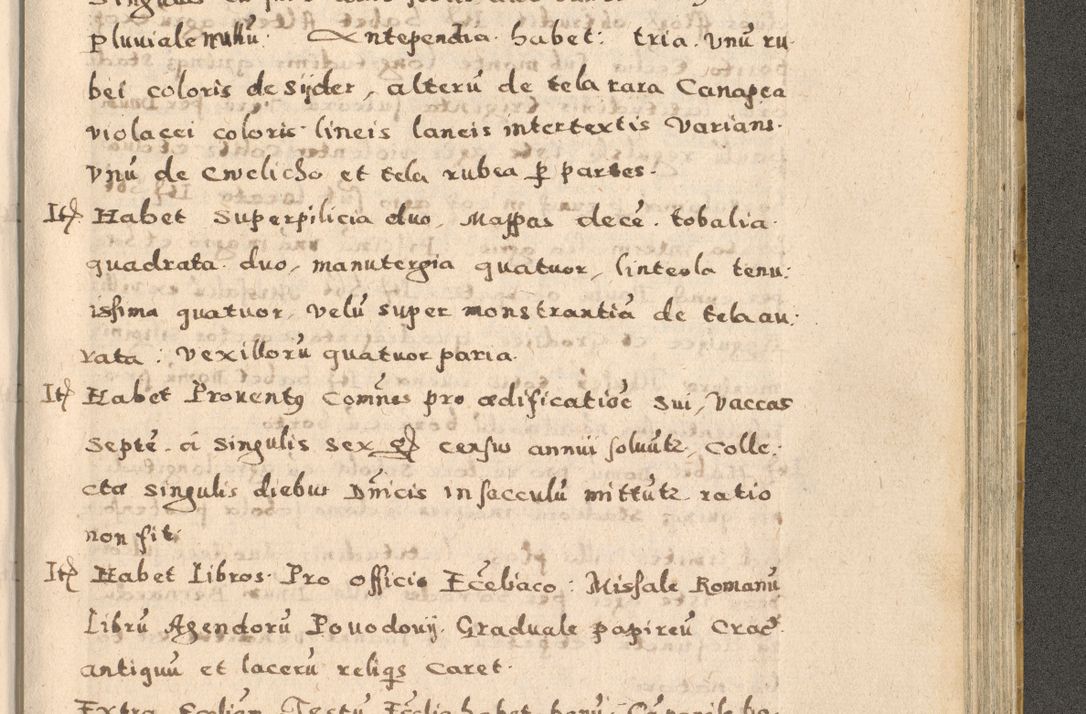 pluuiale nullū. Antependia habet: tria. Vnū ru-
bei coloris de Sijder, alterū de tela rara Canapea
violacei coloris lineis laneis intertextis Varians.
Vnū de Cwelicho et tela rubea ꝑ partes.
Itē Habet Superpilicia duo, Mappas decē. tobalia
quadrata duo, manutergia quatuor, linteola tenu-
issima quatuor, velū super monstrantiā de tela au-
rata: Vexillorū quatuor paria.
Itē Habet Prouentꝯ Comnēs pro ædificatioē sui, Vaccas
Septē. ā Singulis Sex gs̄ census annui soluūtr, Colle-
ctæ Singulis diebus Dnīcis in sacculū mittūtr ratio
non fit.
Itē Habet Libros Pro officio Eccēliaco: Missale Romanū
Librū Agendorū Pouodouij. Graduale papireū Crac̄.
antiquū et lacerū reliqs caret.
Extra habet